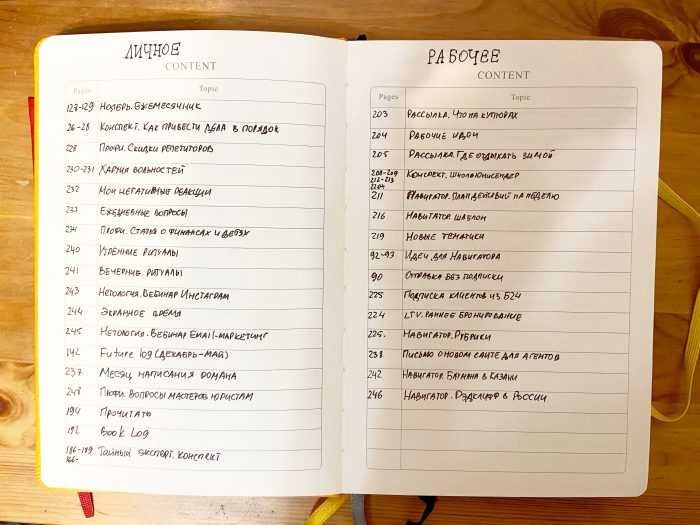 ЛИЧНОЕ
CONTENT
Pages Topic
128-129 Ноябрь. Ежемесячник
26-28 Конспект. Как привести дела в порядок
228 Профи. Скидки репетиторов
230-231 Хартия вольностей
232 Мои негативные реакции
233 Ежедневные вопросы
234 Профи. Статья о финансах и детях
240 Утренние ритуалы
241 Вечерние ритуалы
243 Нетология. Вебинар Инстаграм
244 Экранное время
245 Нетология. Вебинар Email-маркетинг
142 Future log (декабрь-май)
237 Месяц написания романа
248 Профи. Вопросы мастеров юристам
194 Прочитать
192 Book Log
186-189 Тайный эксперт. Конспект
166-
РАБОЧЕЕ
CONTENT
Pages Topic
203 Рассылка. Что на курортах
204 Рабочие идеи
205 Рассылка. Где отдыхать зимой
208-209 Конспект. Школа Юнисендер
212-213
211 Навигатор. План действий на неделю
216 Навигатор. Шаблон
219 Новые тематики
92-93 Идеи для Навигатора
90 Отправка без подписки
225 Подписка клиентов из Б24
224 LTV. Раннее бронирование
225. Навигатор. Рубрики
238 Письмо о новом сайте для агентов
242 Навигатор. Баумана в Казани
246 Навигатор. Рэдклифф в России